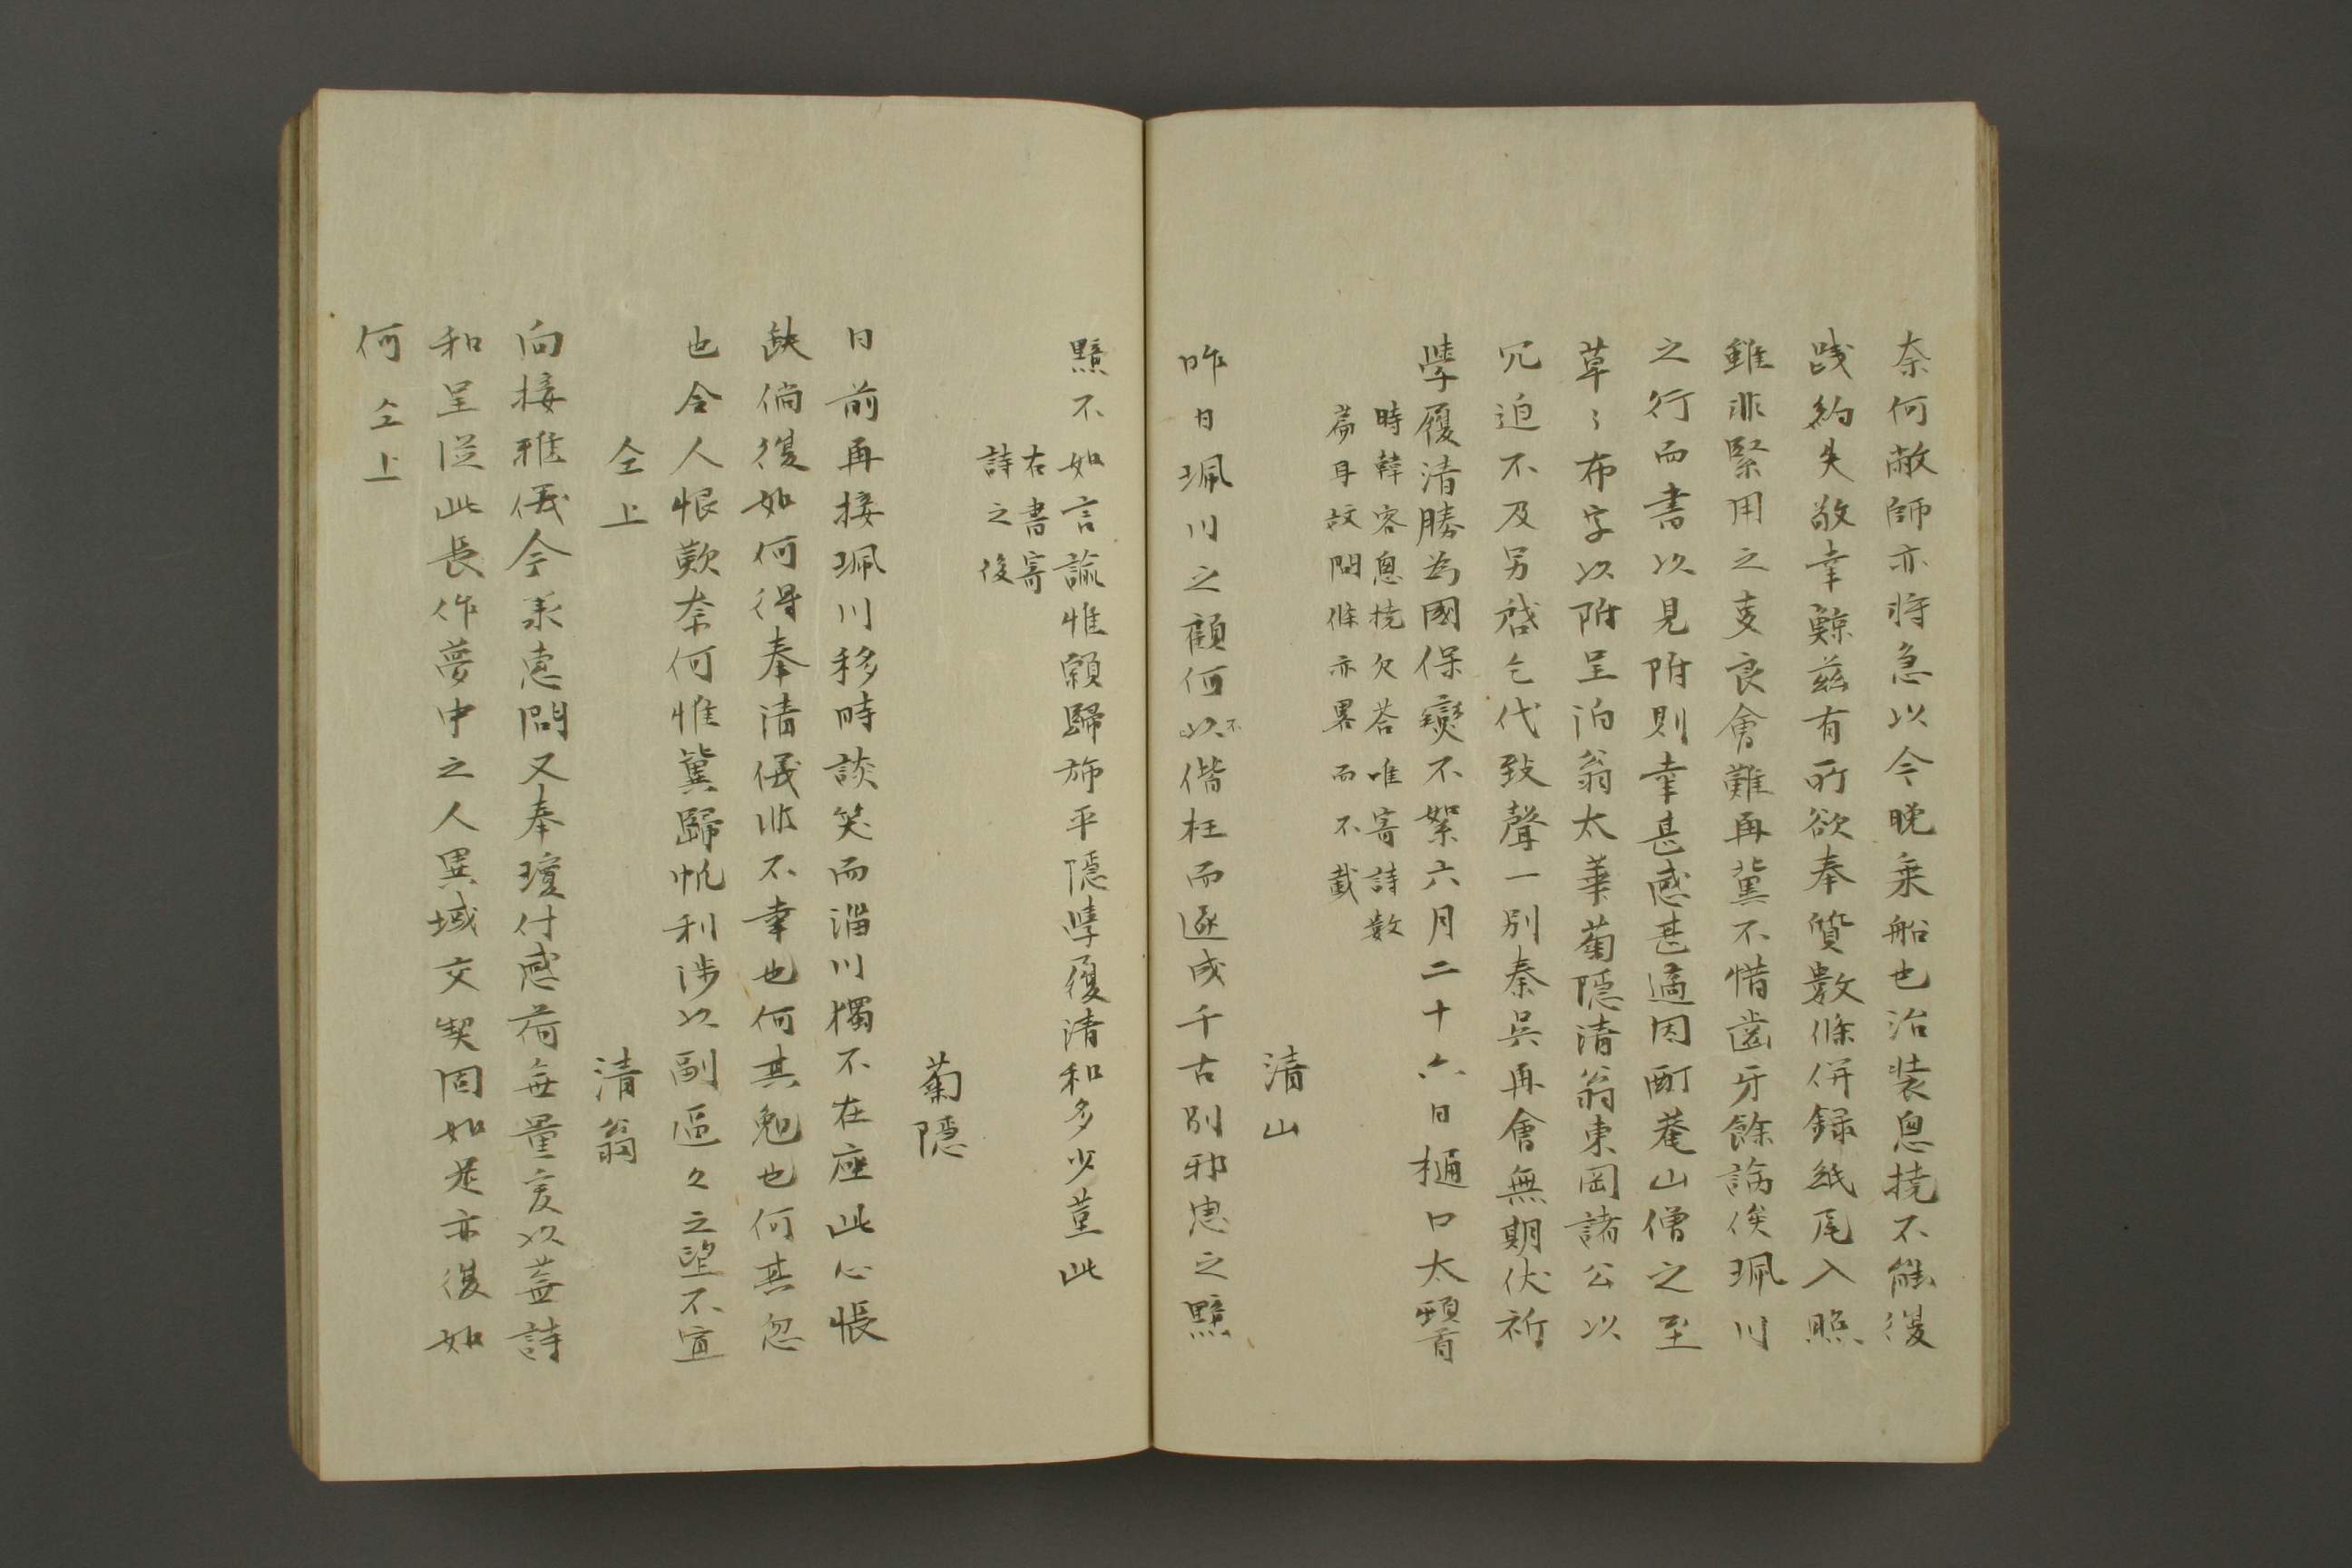 奈何敝師亦將急以今晩乗船也治装悤撓不能復
踐約失敬幸諒茲有所欲奉質數條併録紙尾入照
雖非緊用之支良會難再冀不惜齒牙餘論俟珮川
之行而書以見附則幸甚感甚適因酊菴山僧之至
草〻布字以附呈泊翁太華菊隠清翁東岡諸公以
冗迫不及另啓乞代致聲一別秦呉再會無期伏祈
學履清勝為國保燮不絮六月二十六日樋口太頓首
時韓客悤撓欠荅唯寄詩数
篇耳故問條亦畧而不載
清山
昨日珮川之顧何不以偕枉而遂成千古別邪悤之黯
黯不如言諭惟願歸斾平隠學履清和多少荲此
右書寄
詩之後
菊隠
日前再接珮川移時談笑而淄川獨不在座此心悵
缺倘復如何得奉清儀非不幸也何其勉也何其忽
也令人恨歎奈何惟冀歸帆利涉以副區々之望不宣
仝上
清翁
向接雅儀今承恵問又奉瓊付感荷無量爰以蓋詩
和呈従此長作夢中之人異域交契固如是亦復如
何 仝上